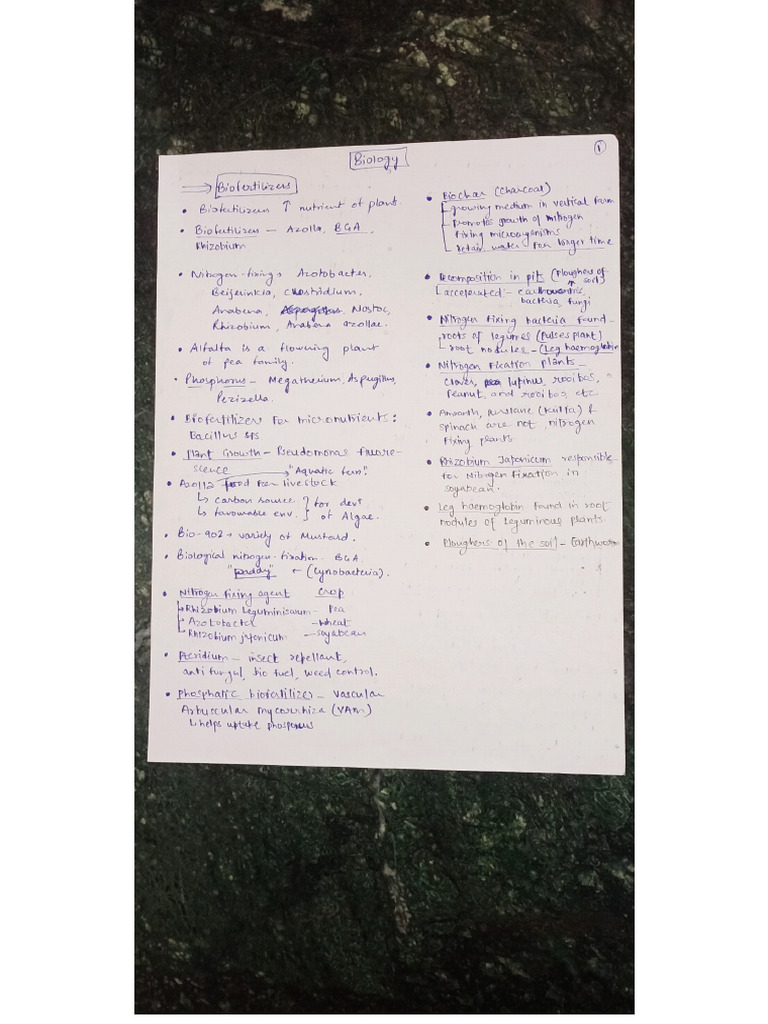 Biology
1
→ Biofertilizers
• Biofertilizers ↑ nutrient of plant.
• Biofertilizers - Azolla, BGA,
Rhizobium
• Nitrogen-fixing → Azotobacter,
Beijerinkia, Clostridium,
Anabena, Nostoc,
Rhizobium, Anabena azollae.
• Alfalfa is a flowering plant
of pea family.
• Phosphorus - Megatherium, Aspugillus,
Pezizella.
• Biofertilizers for micronutrients:
Bacillus sps
• Plant Growth - Pseudomonas fluore-
scence
"Aquatic fern"
• Azolla food for livestock
↳ carbon source } for devp
↳ favourable env. } of Algae.
• Bio-902 → variety of Mustard.
• Biological nitrogen-fixation - BGA
"Paddy" ← (Cynobacteria).
• Nitrogen fixing agent Crop
→ Rhizobium leguminisarum - Pea
→ Azotobactor - Wheat
→ Rhizobium japonicum - Soyabean
• Pteridium - insect repellant,
anti fungul, bio fuel, weed control.
• Phosphatic biofertilizer - Vascular
Arbuscular mycorrhiza (VAM)
↳ helps uptake phosperus
• Biochar (charcoal)
growing medium in vertical farm
promotes growth of nitrogen
fixing microorganisms
retain water for longer time
• Decomposition in pits (Ploughers of soil)
↳ accelerated - earthworms,
bacteria, fungi
• Nitrogen fixing bacteria found -
roots of legumes (Pulses plant)
↳ root nodules - (Leg haemoglobin
• Nitrogen Fixation plants -
Clover, lupinus, rooibos,
Peanut, and rooibos, etc
• Amaranth, purslane (Kulfa) &
spinach are not nitrogen
fixing plants
• Rhizobium Japonicum responsible
for Nitrogen Fixation in
soyabean.
• Leg haemoglobin found in root
nodules of leguminous plants.
• Ploughers of the soil - Earthworm